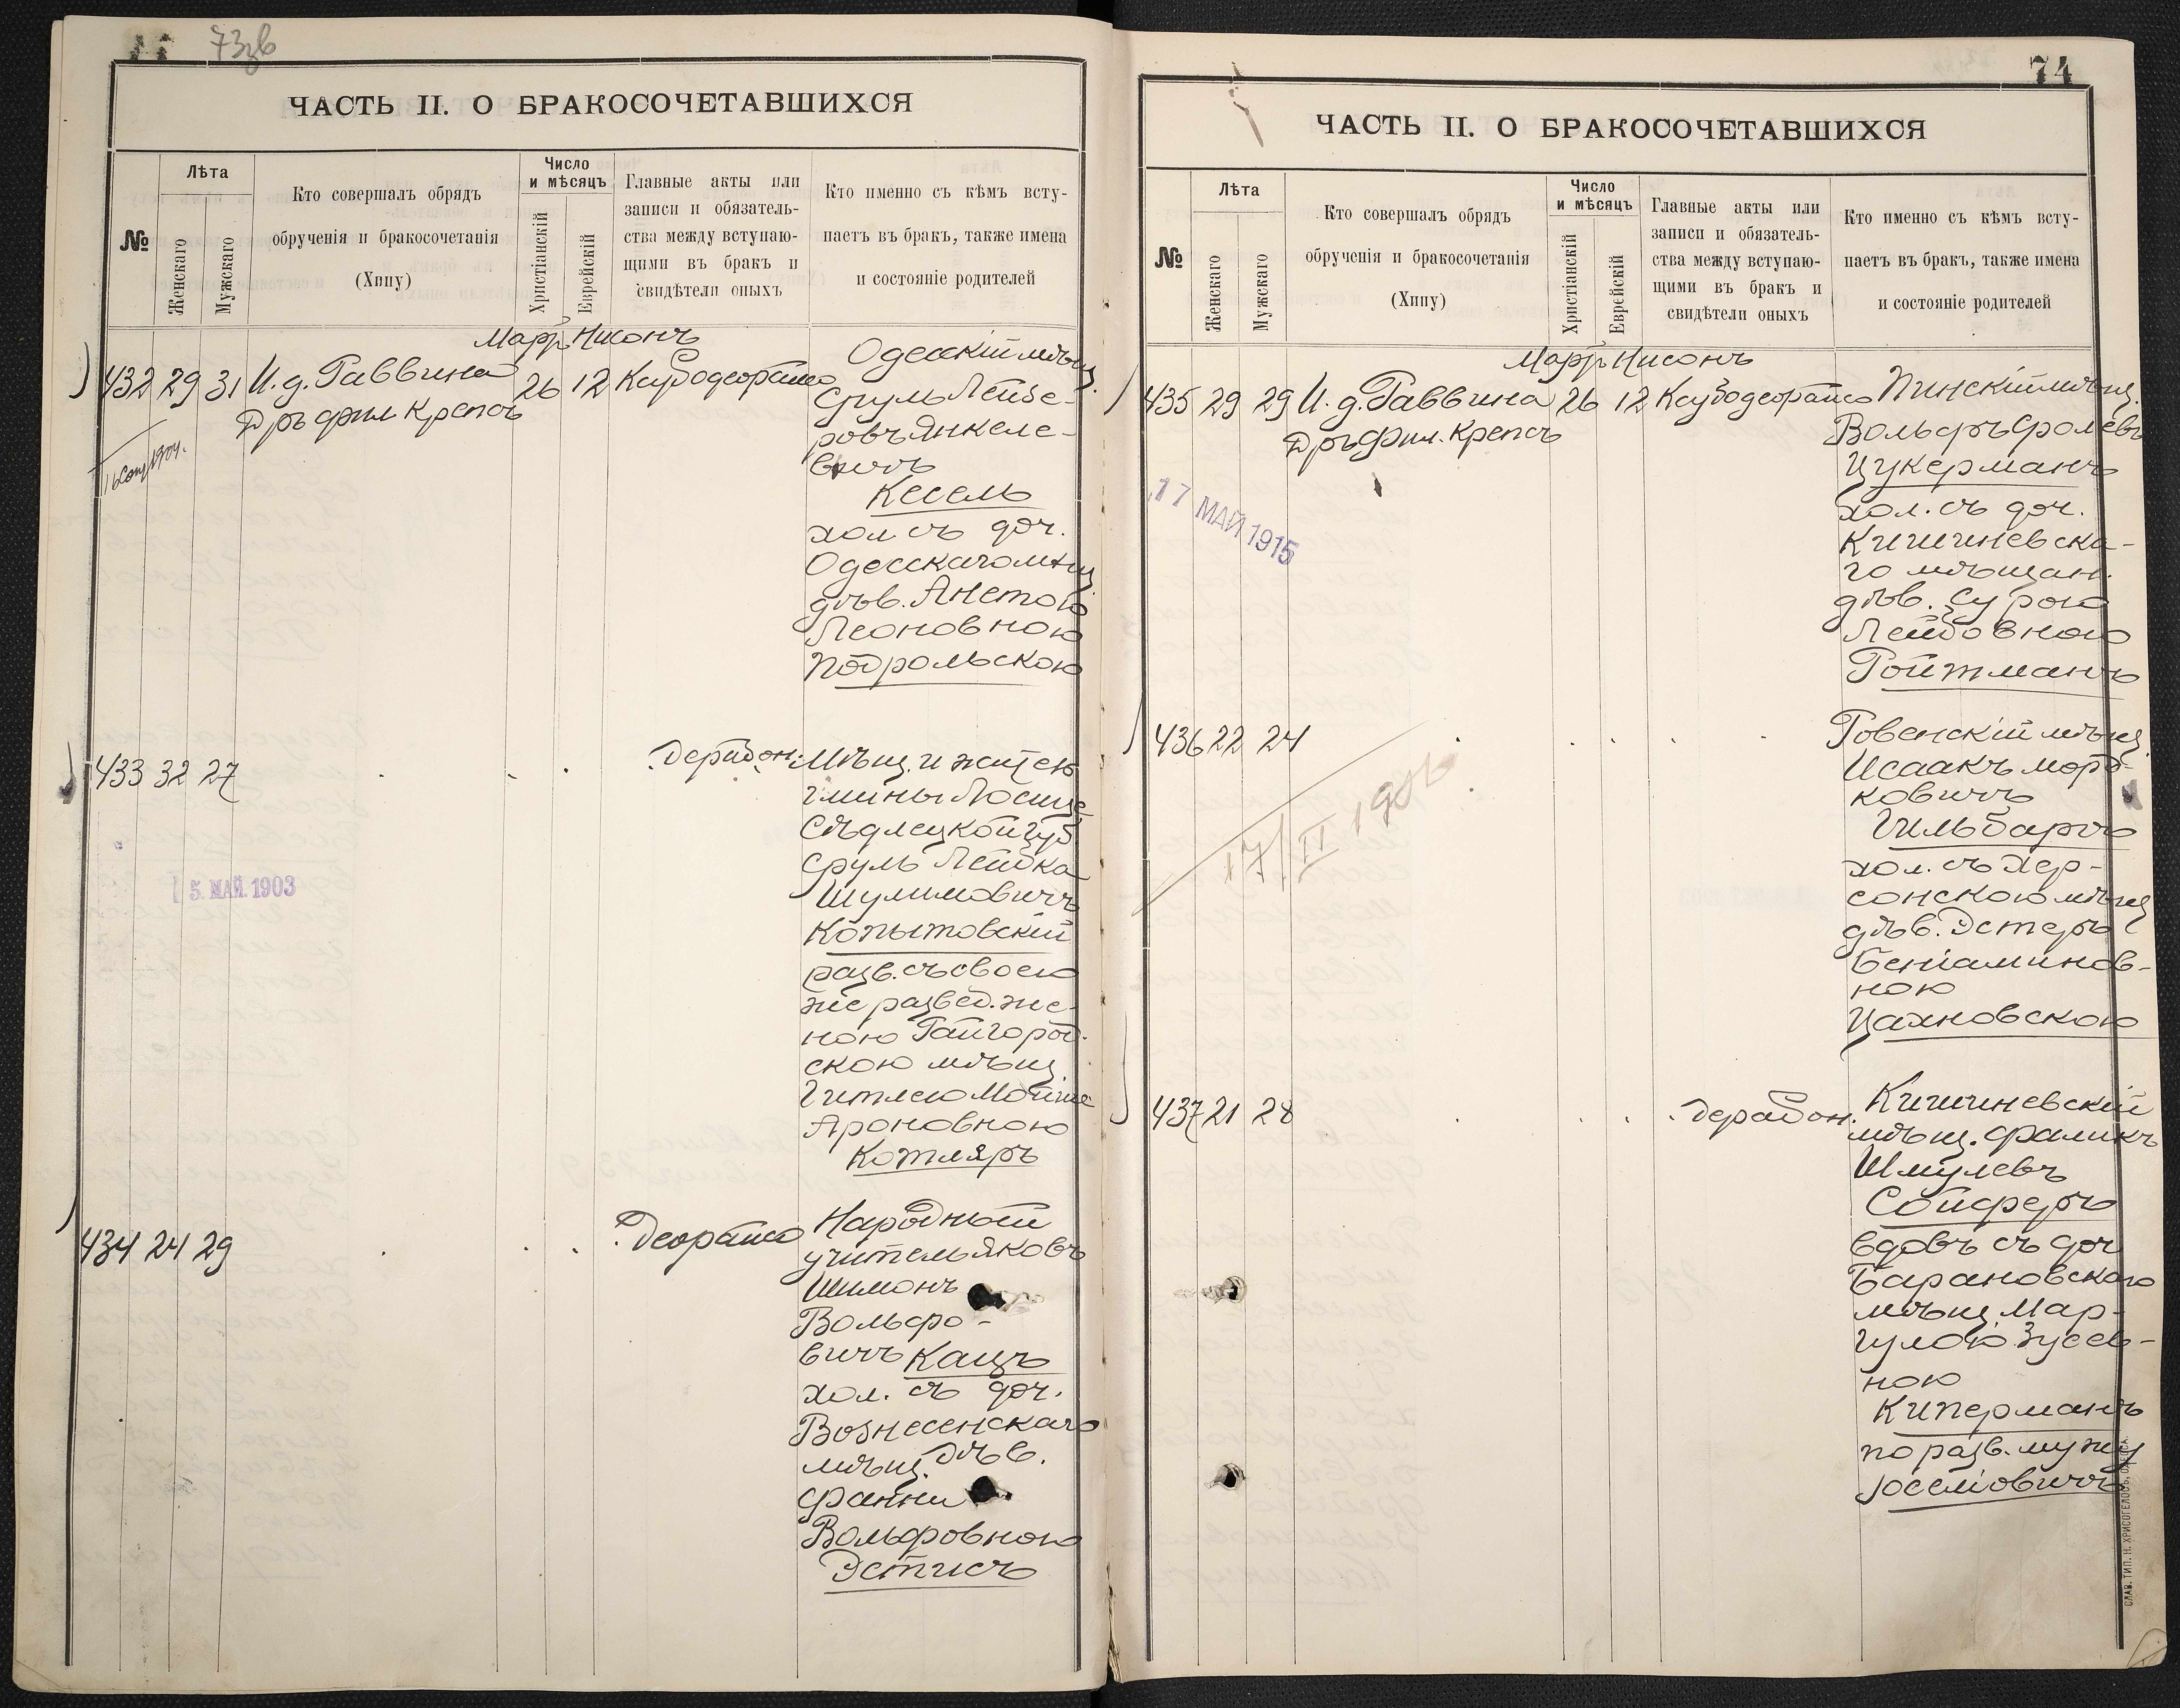 73зв
ЧАСТЬ II. О БРАКОСОЧЕТАВШИХСЯ
№
Лѣта
Женскаго
Мужскаго
Кто совершалъ обрядъ
обрученія и бракосочетанія
(Хипу)
Число
и мѣсяцъ
Христіанскій
Еврейскій
Главные акты или
записи и обязатель-
ства между вступаю-
щими въ бракъ и
свидѣтели оныхъ
Кто именно съ кѣмъ всту-
паетъ въ бракъ, также имена
и состояніе родителей
Март. Нисонъ
432 29 31 И. д. Раввина 26 12
Дръ фил Крепсъ
1904.
Одесскій мѣщ.
Сруль Лейзе-
ровъ Янкеле-
вичъ
Кесель
хол съ доч.
Одесскаго мѣщ
дѣв. Анетою
Леоновною
Подрольскою
433 32 27
Мѣщ. и жител
гмины Лосице
Сѣдлецкой губ
Сруль Лейбка
Шулимовичъ
Копытовскій
разв. съ своею
же развед. же-
ною Гайгород-
скою мѣщ
Гитлею Мойше
Ароновною
Котляръ
5. МАЙ. 1903
434 24 29
Народный
учитель Яковъ
Шимонъ
Вольфо-
вичъ Кацъ
хол. съ доч.
Вознесенскаго
мѣщ. дѣв.
Фанни
Вольфовною
Эстисъ
74
ЧАСТЬ II. О БРАКОСОЧЕТАВШИХСЯ
№
Лѣта
Женскаго
Мужскаго
Кто совершалъ обрядъ
обрученія и бракосочетанія
(Хипу)
Число
и мѣсяцъ
Христіанскій
Еврейскій
Главные акты или
записи и обязатель-
ства между вступаю-
щими въ бракъ и
свидѣтели оныхъ
Кто именно съ кѣмъ всту-
паетъ въ бракъ, также имена
и состояніе родителей
Март. Нисонъ
435 29 29 И. д. Раввина 26 12
Дръ Фил. Крепсъ
17 МАЙ 1915
Пинскій мѣщ.
Вольфъ Фролевъ
Цукерманъ
хол. съ доч.
Кишиневска-
го мѣщан.
дѣв. Сурою
Лейбовною
Ройтманъ
436 22 24
17/II 19
Ровенскій мѣщ.
Исаакъ Морд-
ковичъ
Гильбаръ
хол. съ Хер-
сонскою мѣщ
дѣв. Эстеръ
Беніаминов-
ною
Цахновскою
437 21 28
Кишиневскій
мѣщ. Фаликъ
Шмулевъ
Сойферъ
вдовъ съ доч
Барановскаго
мѣщ. Мар-
гулою Зусев-
ною
Киперманъ
по разв. мужу
Іоселіовичъ
СЛАВ. ТИП. Н. ХРИСОГЕЛОСЪ, ОДЕССА.